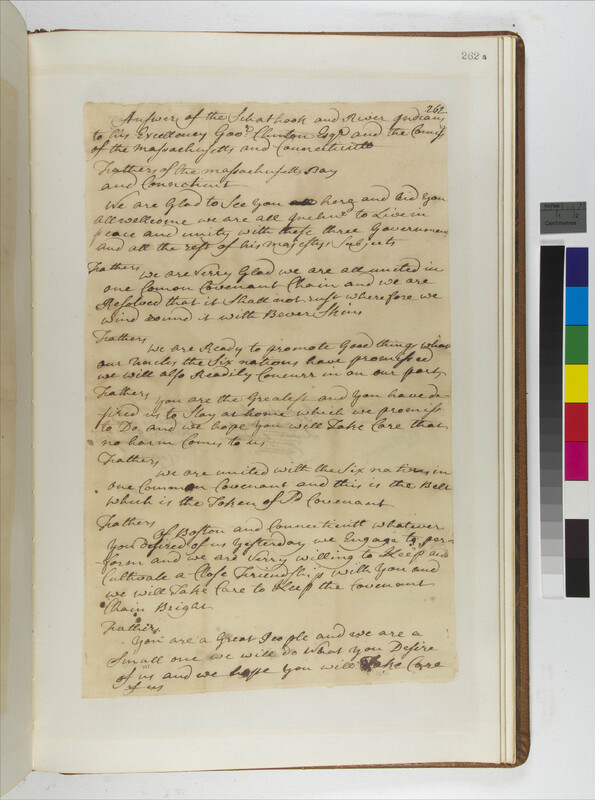 262 a
262
Answer of the Schathook and River Indians
to his Excellency Govr. Clinton Esqr. and the Comiss
of the Massachusetts and Connecticutt
Fathers of the Massachusetts Bay
and Connecticut
We are Glad to See You all here and bid you
all wellcome we are all to Live in
peace and unity with these three Governments
and all the rest of his majestys Subjects
Fathers
we are verry Glad we are all united in
one Comon Covenant Chain and we are
Resolved that it Shall not rust wherefore we
wind round it with Bever Skins
Fathers
we are Ready to promote Good things what
our Uncles the Six nations have promissed
we will also Readily Concurr in on our part
Fathers
you are the Greatest and You have de
sired us to Stay at home which we promiss
to Do and we hope you will Take Care that
no harm Comes to us
Fathers
we are united with the Six nations in
one Common Covenant and this is the Belt
which is the Token of Sd Covenant
Fathers
of Boston and Connecticutt whatever
You desired of us Yesterday we Engage to per
form and we are Verry willing to Keep and
Cultivate a Close Friendship with You and
we will Take Care to Keep the Covenant
Chain Bright
Fathers
You are a Great People and we are a
Small one we will do what you Desire
of us and we hope you will Take Care
of us
Centimetres